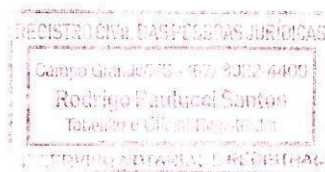 REGISTRO CIVIL DAS PESSOAS JURÍDICAS
Campo Grande/MS - (67) 3022-4400
Rodrigo Paulucci Santos
Tabelião e
SERVIÇO NOTARIAL E REGISTRAL